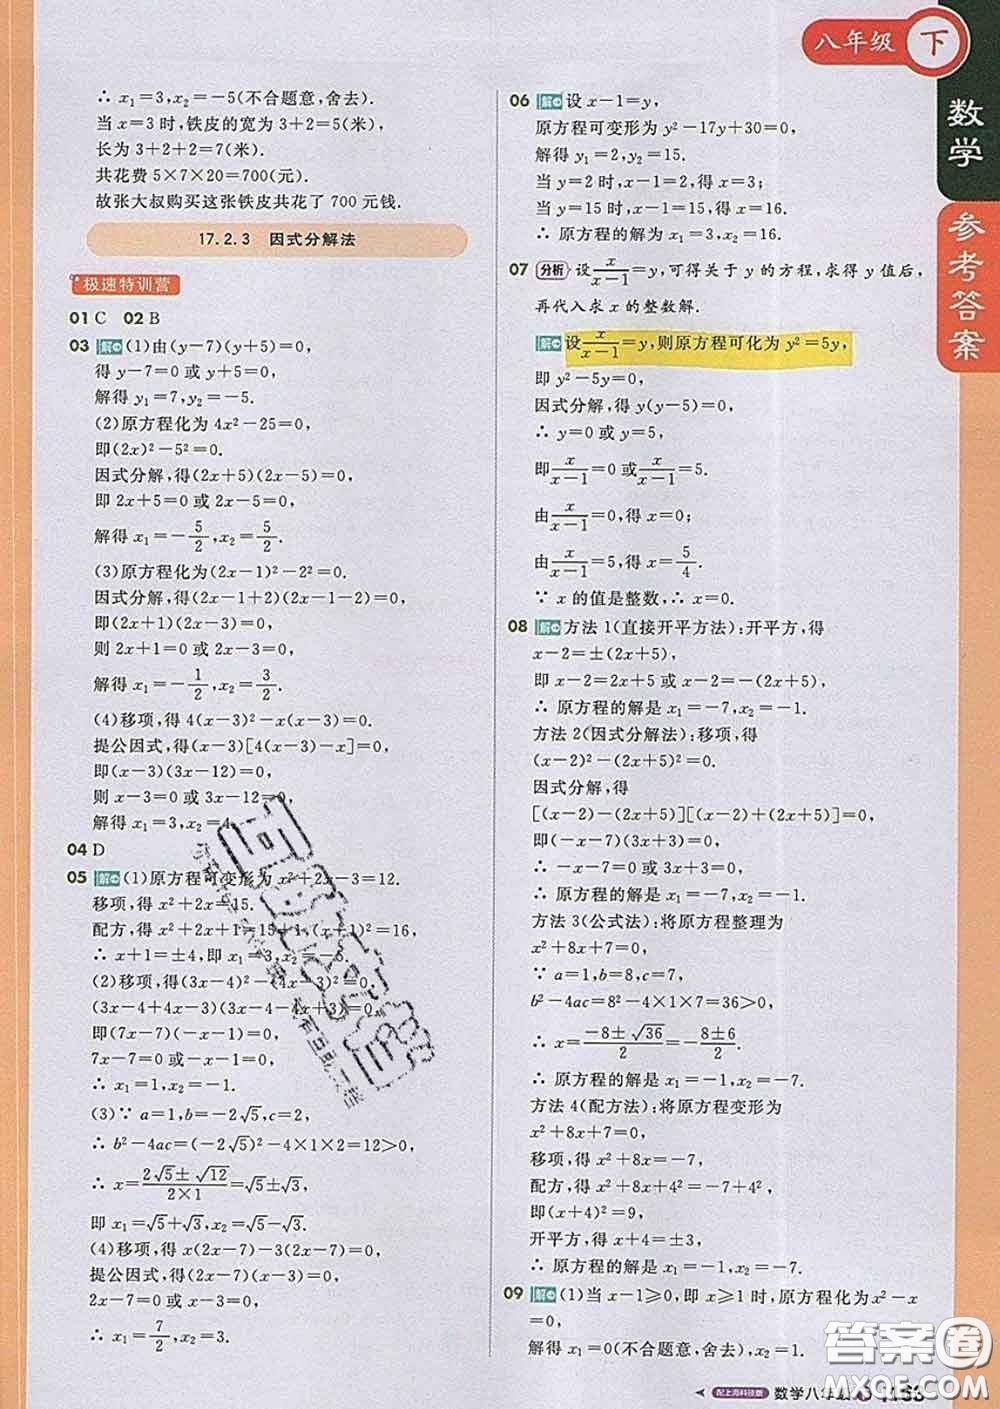 八年级 下
数学
参考答案
∴ x₁=3,x₂=-5(不合题意,舍去).
当 x=3时,铁皮的宽为 3+2=5(米),
长为 3+2+2=7(米).
共花费 5×7×20=700(元).
故张大叔购买这张铁皮共花了 700 元钱.
17.2.3 因式分解法
极速特训营
01 C 02 B
03 解 (1)由(y-7)(y+5)=0,
得 y-7=0 或 y+5=0,
解得 y₁=7,y₂=-5.
(2)原方程化为 4x²-25=0,
即(2x)²-5²=0.
因式分解,得(2x+5)(2x-5)=0,
即 2x+5=0 或 2x-5=0,
解得 x₁=-5/2,x₂=5/2.
(3)原方程化为(2x-1)²-2²=0.
因式分解,得(2x-1+2)(2x-1-2)=0,
即(2x+1)(2x-3)=0,
则 2x+1=0 或 2x-3=0,
解得 x₁=-1/2,x₂=3/2.
(4)移项,得 4(x-3)²-x(x-3)=0.
提公因式,得(x-3)[4(x-3)-x]=0,
即(x-3)(3x-12)=0,
则 x-3=0 或 3x-12=0,
解得 x₁=3,x₂=4.
04 D
05 解 (1)原方程可变形为 x²+2x-3=12.
移项,得 x²+2x=15.
配方,得 x²+2x+1=15+1,(x+1)²=16,
∴ x+1=±4,即 x₁=3,x₂=-5.
(2)移项,得(3x-4)²-(4x-3)²=0,
(3x-4+4x-3)(3x-4-4x+3)=0,
即(7x-7)(-x-1)=0,
7x-7=0 或-x-1=0,
∴ x₁=1,x₂=-1.
(3)∵ a=1,b=-2√5,c=2,
∴ b²-4ac=(-2√5)²-4×1×2=12>0,
∴ x=(2√5±√12)/(2×1)=√5±√3,
即 x₁=√5+√3,x₂=√5-√3.
(4)移项,得 x(2x-7)-3(2x-7)=0,
提公因式,得(2x-7)(x-3)=0,
2x-7=0 或 x-3=0,
∴ x₁=7/2,x₂=3.
06 解 设 x-1=y,
原方程可变形为 y²-17y+30=0,
解得 y₁=2,y₂=15.
当 y=2 时,x-1=2,得 x=3;
当 y=15 时,x-1=15,得 x=16.
∴ 原方程的解为 x₁=3,x₂=16.
07 分析 设x/(x-1)=y,可得关于 y 的方程,求得 y 值后,
再代入求 x 的整数解.
解 设x/(x-1)=y,则原方程可化为 y²=5y,
即 y²-5y=0,
因式分解,得 y(y-5)=0,
∴ y=0 或 y=5,
即x/(x-1)=0 或x/(x-1)=5.
由x/(x-1)=0,得 x=0;
由x/(x-1)=5,得 x=5/4.
∵ x 的值是整数,∴ x=0.
08 解 方法 1(直接开平方法):开平方,得
x-2=±(2x+5),
即 x-2=2x+5 或 x-2=-(2x+5),
∴ 原方程的解是 x₁=-7,x₂=-1.
方法 2(因式分解法):移项,得
(x-2)²-(2x+5)²=0.
因式分解,得
[(x-2)-(2x+5)][(x-2)+(2x+5)]=0,
即(-x-7)(3x+3)=0,
∴ -x-7=0 或 3x+3=0,
∴ 原方程的解是 x₁=-7,x₂=-1.
方法 3(公式法):将原方程整理为
x²+8x+7=0,
∵ a=1,b=8,c=7,
b²-4ac=8²-4×1×7=36>0,
∴ x=(-8±√36)/2=(-8±6)/2.
∴ 原方程的解是 x₁=-1,x₂=-7.
方法 4(配方法):将原方程变形为
x²+8x+7=0,
移项,得 x²+8x=-7,
配方,得 x²+8x+4²=-7+4²,
即(x+4)²=9,
开平方,得 x+4=±3,
∴ 原方程的解是 x₁=-1,x₂=-7.
09 解 (1)当 x-1≥0,即 x≥1 时,原方程化为x²-x
=0,
解得 x₁=0(不合题意,舍去),x₂=1.
配上海科技版 数学八年
答案圈